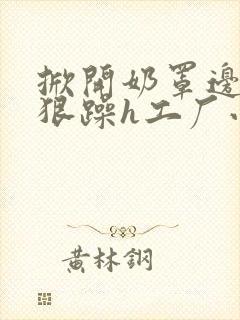 掀開奶罩邊
狠躁h工厂
黃林鋼